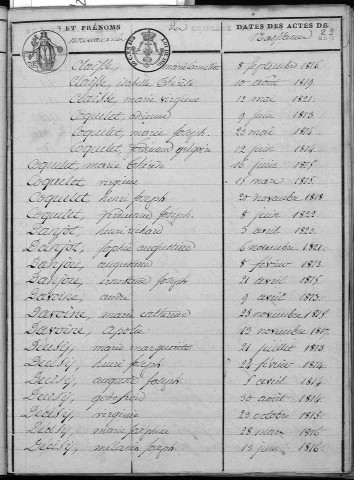 ET PRÉNOMS DATES DES ACTES DE
Baptême 23
8 septembre 1816
Claisse, isabelle thérèse 10 août 1819.
Claisse, marie virginie 12 mai 1821.
Coquelet, 9 juin 1813
Coquelet, marie joseph. 23 mai 1814
Coquelet, 12 juin 1814.
Coquelet, marie thérèse 16 juin 1815.
Coquelet, virginie 15 mars 1815.
Coquelet, henri joseph 20 novembre 1818
Coquelet, ferdinand joseph. 8 juin 1822.
henri richard 5 avril 1820.
Danjou, sophie augustine 6 novembre 1821.
Danjou, augustine 8 février 1813.
Danjou, joseph 21 avril 1815.
Davoine, andré 9 avril 1813.
Davoine, marie catherine 25 novembre 1815.
Davoine, 13 novembre 1817.
Deusy, marie marguerite 21 juillet 1813
Deusy, henri joseph 24 février 1814.
Deusy, auguste joseph. 5 avril 1814
Deusy, godefroid 30 août 1814.
Deusy, virginie 29 octobre 1815.
Deusy, marie josephine 28 mars 1816
Deusy, mélanie joseph. 13 juin 1816